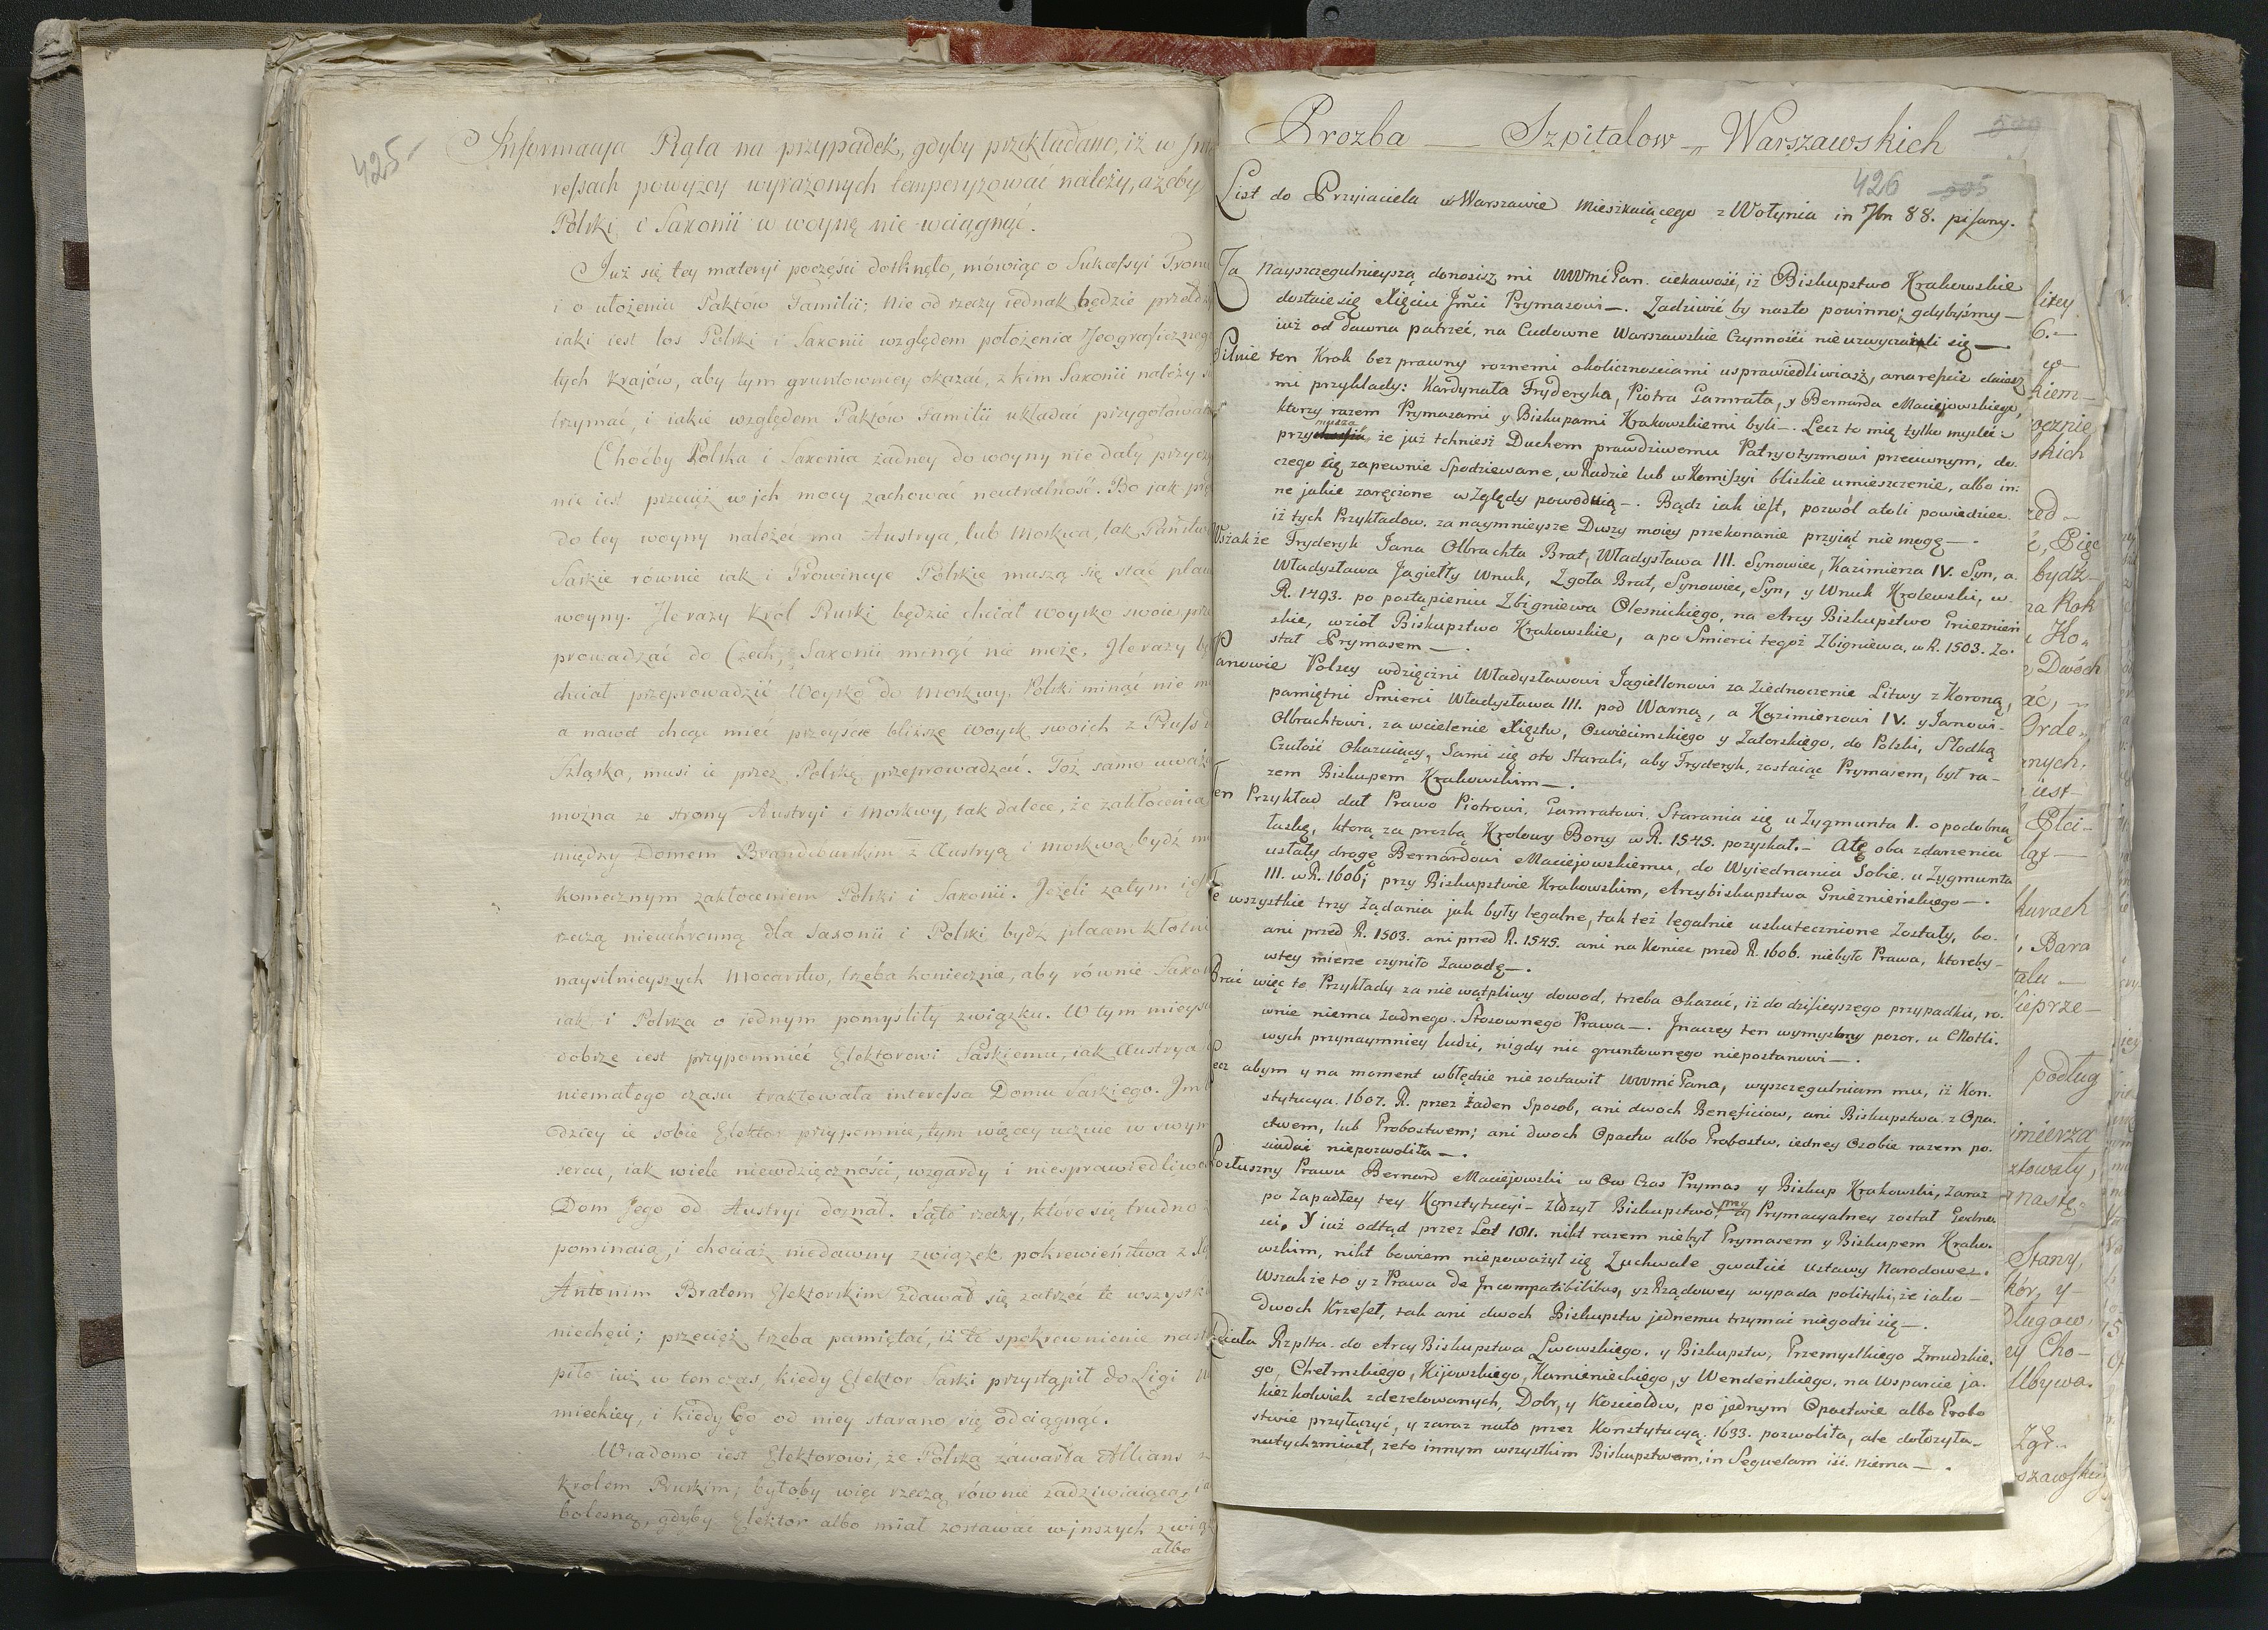 425
Informacya Piąta na przypadek, gdyby przekładano, iż w Jnte
ressach powyżey wyrażonych temperyzować należy, ażeby
Polski i Saxonii w woynę nie wciągnąć.
Już się tey materyi poczęści dotknęło, mówiąc o Sukcessyi Tronu
i o ułożeniu Paktow Familii; nie od rzeczy iednak będzie
iaki iest los Polski i Saxonii względem położenia Jeograficzneg
tych Krajów, aby tym gruntowniey okazać, z kim Saxonii należy
trzymać, i iakie względem Paktów Familii układać przygotowan
Choćby Polska i Saxonia żadney do woyny nie dały przycz
nie iest przecięż w jch mocy zachować neutralność. Bo jak
do tey woyny należeć ma Austrya, lub Moskwa, tak Państwa
Saskie równie iak i Prowincye Polskie muszą się stać plac
woyny. Ile razy Krol Pruski będzie chciał woysko swoie
prowadzać do Czech, Saxonii minąć nie może, Ile razy
chciał przeprowadzić Woysko do Moskwy, Polski minąć nie m
a nawet chcąc mieć przeyście bliższe woysk swoich z Pruss
Szląsko, musi ie przez Polskę przeprowadzać. Toż samo uważ
można ze strony Austryi i Moskwy, tak dalece, że zakłócenia
między Domem Brandeburskim z Austryą i Moskwą bydź
koniecznym zakłoceniem Polski i Saxonii. Jeżeli zatym
rzeczą nieuchronną dla Saxonii i Polski bydź placem kłótni
naysilnieyszych Mocarstw, trzeba koniecznie, aby równie Saxon
iak i Polska o jednym pomyśliły związku. W tym mieysc
dobrze iest przypomnieć Elektorowi Saskiemu, iak Austrya
niemałego czasu traktowała interessa Domu Saskiego. Jm
dziey ie sobie Elektor przypomnie, tym więcey uczuie w swym
sercu, iak wiele niewdzięczności, wzgardy i niesprawiedliwo
Dom Jego od Austryi doznał. Sąto rzeczy, ktore się trudno
pominaią, i chociaż niedawny związek pokrewieństwa z
Antonim Bratem Elektorskim zdawał się zatrzeć te wszystk
niechęci; przecięż trzeba pamiętać, iż te spokrewnienie nast
piło iuż w ten czas, kiedy Elektor Saski przystąpił do Ligi
mieckiey, i kiedy Go od niey starano się odciągnąć.
Wiadomo iest Elektorowi, że Polska zawarła Allians
Krolem Pruskim; byłoby więc rzeczą równie zadziwiaiącą,
bolesną, gdyby Elektor albo miał zostawać w jnszych związ
albo
Prozba — Szpitalow — Warszawskich
426
List do Przyiaciela w Warszawie mieszkaiącego z Wołynia in 7br 88. pisany.
Ja Nayszczegulnieyszą donosisz mi WWmć Pan. ciekawość, iż Biskupstwo Krakowskie
dostaie się Xięciu Jmci Prymasowi —. Zadziwić by nasto powinno, gdybyśmy —
iuż od dawna patrzeć, na Cudowne Warszawskie Czynności nie uzwyczaieli się —.
Silnie ten Krok bez prawny roznemi okolicznosciami usprawiedliwiasz, anareszcie daiesz
mi przykłady: Kardynała Fryderyka, Piotra Gamrata, y Bernarda Maciejowskiego,
ktorzy razem Prymasami y Biskupami Krakowskiemi byli —. Lecz te mię tylko myśleć
przymusza że już tchniesz Duchem prawdziwemu Patryotyzmowi przeciwnym, do
czego się zapewnie Spodziewane, w Radzie lub w Komissyi bliskie umieszczenie, albo in:
ne jakie zaręczone wzlędy powodują —. Bądz iak iest, pozwól atoli powiedziec
iż tych Przykładow, za naymnieysze Duszy moiey przekonanie przyiąć nie mogę —.
Wszakże Fryderyk Jana Olbrachta Brat, Władysława III. Synowiec, Kazimierza IV. Syn, a
Władysława Jagiełły Wnuk, Zgoła Brat, Synowiec, Syn, y Wnuk Krolewski, w
R. 1493. po postąpieniu Zbigniewa Olesnickiego, na Arcy Biskupstwo Gnieznień
skie, wziół Biskupstwo Krakowskie, a po Śmierci tegoż Zbigniewa, w R. 1503. Zo:
stał Prymasem —.
Panowie Polscy wdzięczni Władysławowi Jagiellonowi za Ziednoczenie Litwy z Koroną,
pamiętni Śmierci Władysława III. pod Warną, a Kazimierzowi IV. y Janowi
Olbrachtowi, za wcielenie Xięstw, Oswiecimskiego y Zatorskiego, do Polski, Słodką
Czułość Okazuiący, Sami się oto Starali, aby Fryderyk, zostaiąc Prymasem, był ra-
zem Biskupem Krakowskim —.
Ten Przykład dał Prawo Piotrowi, Gamratowi, Starania się u Zygmunta I. o podobną
łaskę, ktorą za prozbą Krolowy Bony w R. 1545. pozyskał. — Atę oba zdarzenia
usłały drogę Bernardowi Maciejowskiemu, do Wyiednania Sobie, u Zygmunta
III. w R. 1606, przy Biskupstwie Krakowskim, Arcybiskupstwa Gnieznieńskiego —.
Te wszystkie trzy Żądania jak były legalne, tak też legalnie uskutecznione Zostały, bo
ani przed R. 1503. ani przed R. 1545. ani na koniec przed R. 1606. niebyło Prawa, ktoreby-
wtey mierze czyniło zawadę —.
Brać więc te Przykłady za nie wątpliwy dowod, trzeba okazać, iż do dzisieyszego przypadku, ro.
wnie niema żadnego Stosownego Prawa —. Jnaczey ten wymyslny pozor, u Cnotli.
wych przynaymniey ludzi, nigdy nic gruntownego niepostanowi —.
Lecz abym y na moment wbłędzie nie zostawił WWmć Pana, wyszczegulniam mu, iż Kon.
stytucya 1607. R. przez żaden Sposob, ani dwoch Beneficiow, ani Biskupstwa z Opa.
ctwem, lub Probostwem; ani dwoch Opactw albo Probostw, iedney Osobie razem po.
siadać niepozwoliła —.
Posłuszny Prawu Bernard Maciejowski w Ow Czas Prymas y Biskup Krakowski, zaraz
po zapadłey tey Konstytucyi — Złożył Biskupstwo, przy Prymacyalney został Godno
sci. Y iuż odtąd przez Lat 181. nikt razem niebył Prymasem y Biskupem Krako.
wskim, nikt bowiem niepoważył się Zuchwale gwałcić ustawy Narodowey.
Wszakże to y z Prawa de Jncompatibilibus, yz Rządowey wypada polityki, że iako —
dwoch Krzeseł, tak ani dwoch Biskupstw jednemu trzymać niegodzi się —.
Rzplta. do Arcy Biskupstwa Lwowskiego, y Biskupstw, Przemyslkiego Zmudzkie.
go, Chełmskiego, Kijowskiego, Kamienieckiego, y Wendenskiego, na Wsparcie ja.
kiezkolwiek zdezelowanych, Dobr, y Kosciołow, po jednym Opactwie albo Probo
stwie przyłączyć, y zaraz nato przez Konstytucyą 1633. pozwoliła, ale dołożyła —
natychmiast, żeto innym wszystkim Biskupstwom, in Sequelam iść niema —.
litey
6. —
w
kiem —
ocznie
skich
zed —
ć, Pięc
bydź —
za Rok
Ko„
Dwóch
ać,
Orde„
nych.
ust —
Płci —
ląt —
kurach
, Bara
talu —
sieprze —
podług
imierza
ztowały,
nastę„
Stany,
kór, y —
Długow,
ey Cho —
Ubywa.
Zgr..
szawskij